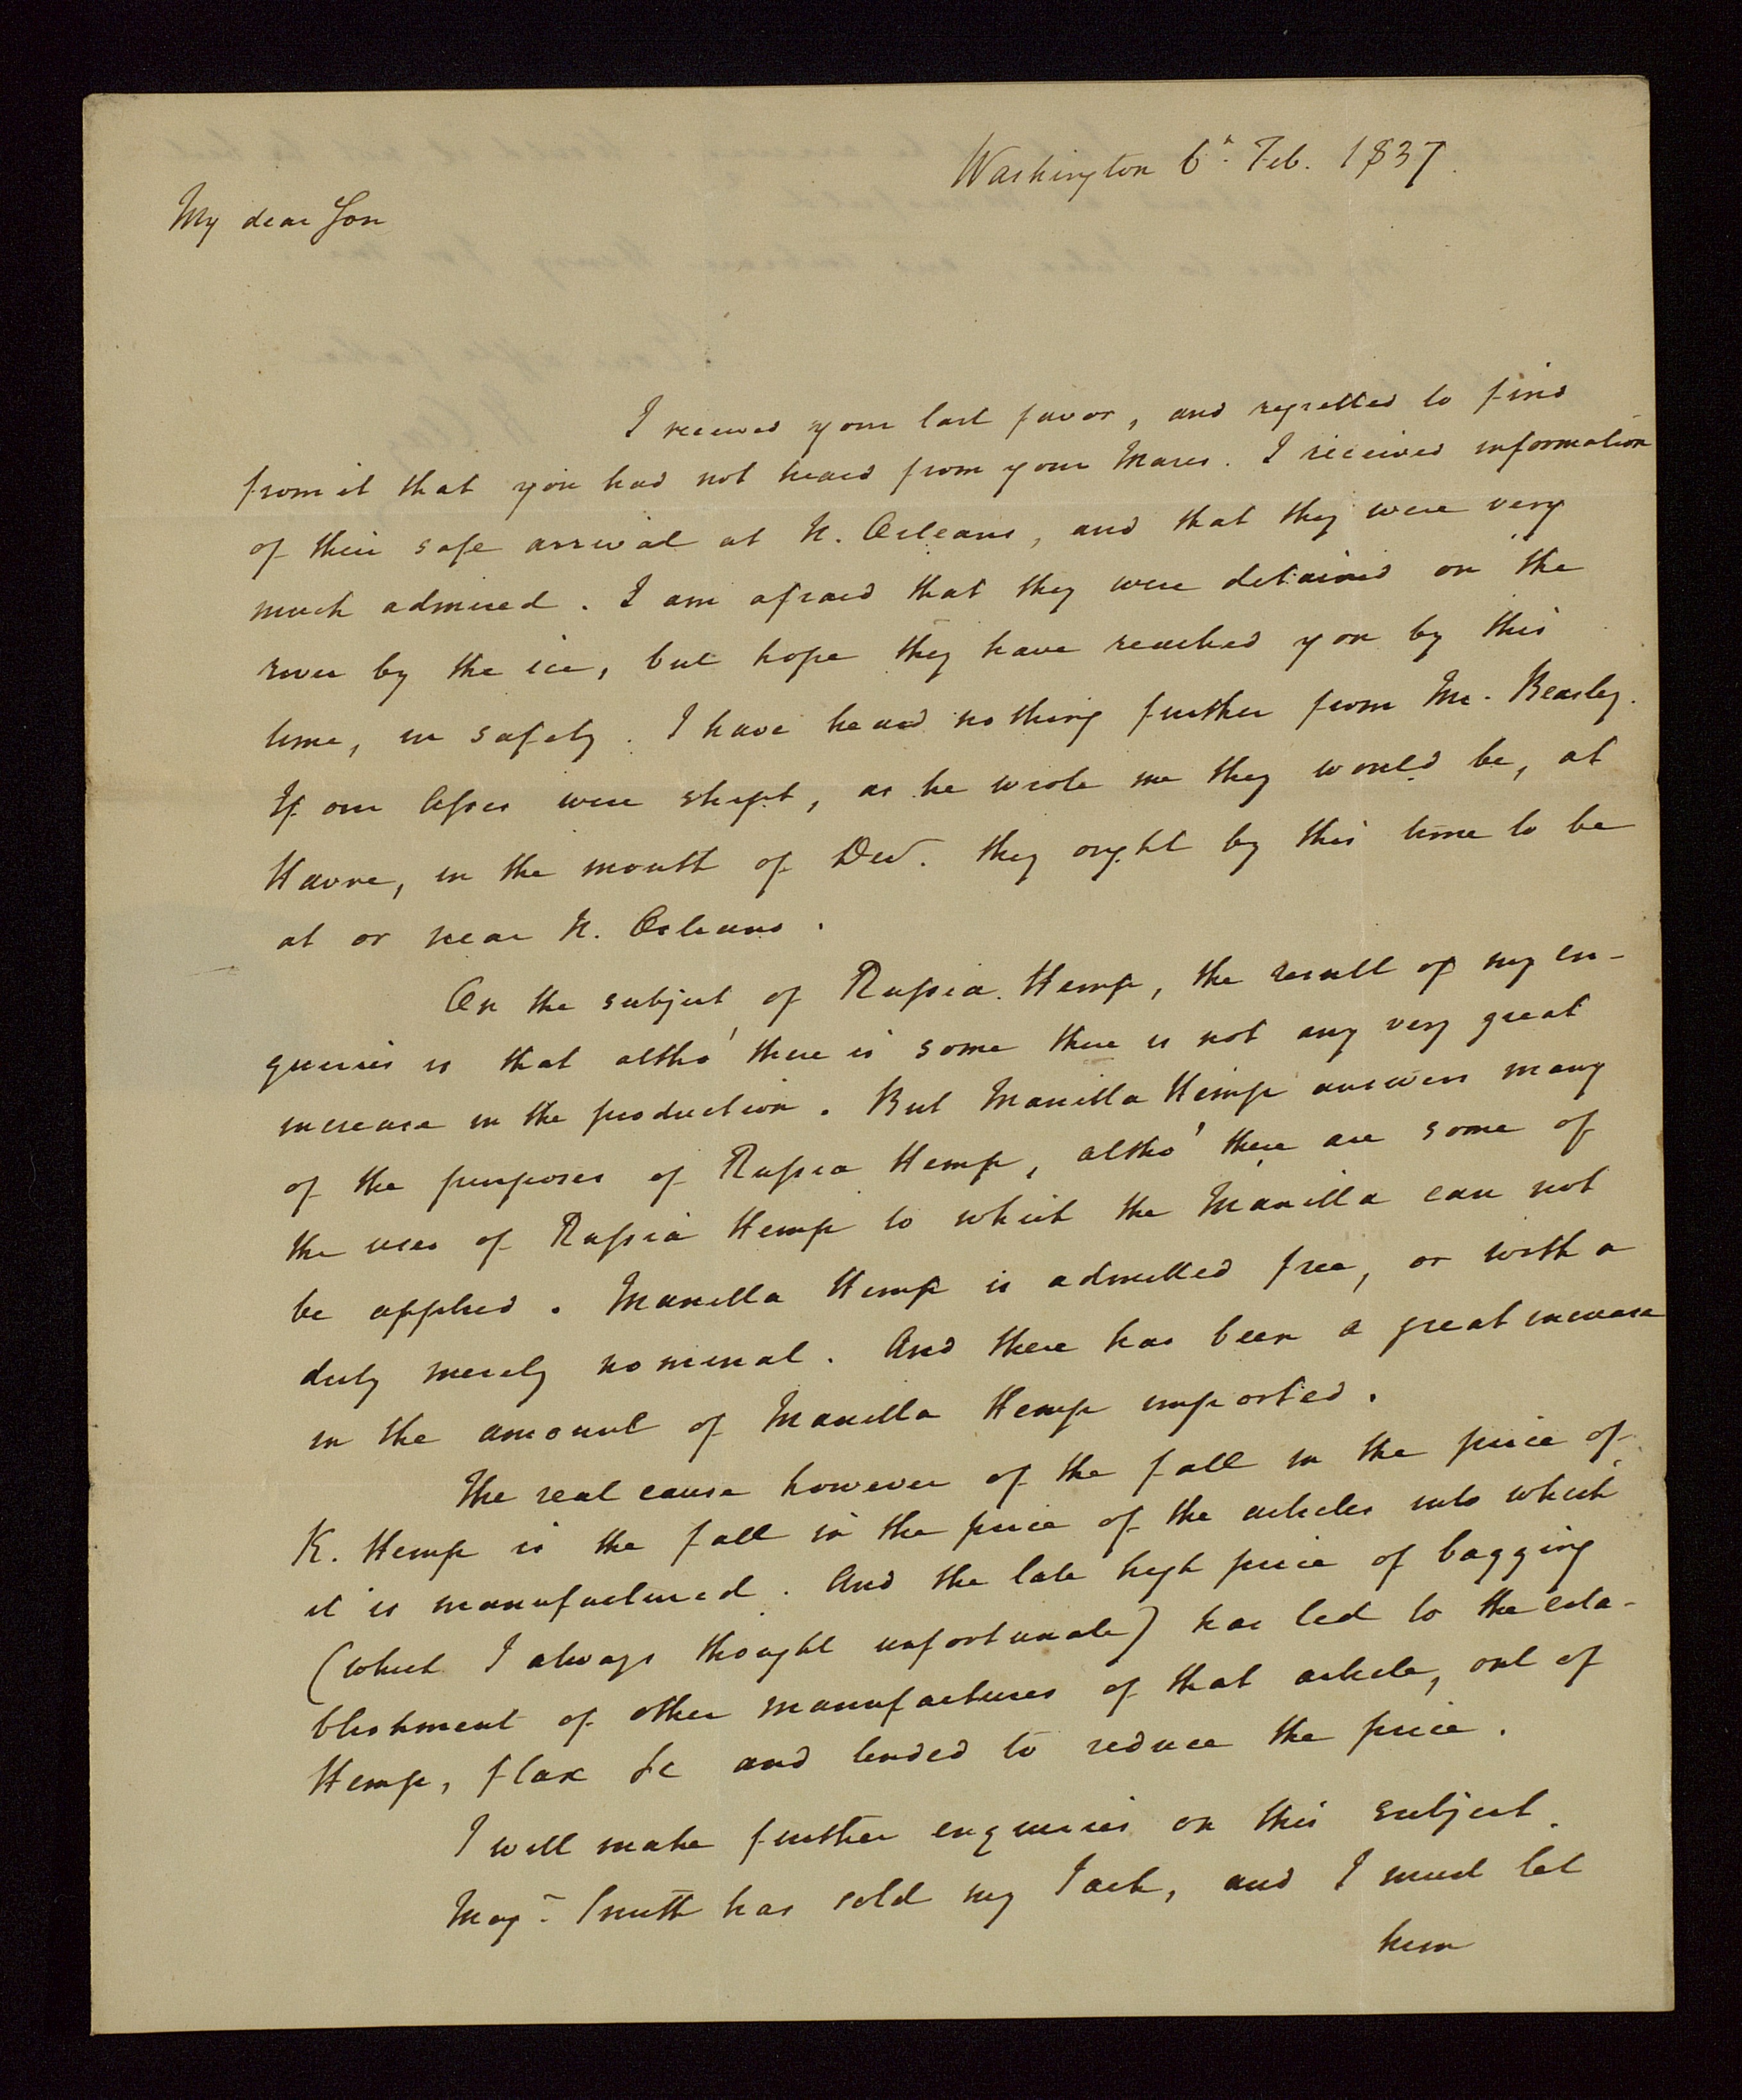 Washington 6h. Feb. 1837.
My dear Son
I received your last favor, and regretted to find
from it that you had not heard from your Mares. I received information
of their safe arrival at N. Orleans, and that they were very
much admired. I am afraid that they were detained on the
river by the ice, but hope they have reached you by this
time, in safety. I have heard nothing further from Mr. Beasley.
If our Asses were shipt, as he wrote me they would be, at
Havre, in the month of Decr. they ought by this time to be
at or near N. Orleans.
On the subject of Russia Hemp, the result of my en-
quiries is that altho' there is some there is not any very great
increase in the production. But Manilla Hemp answers many
of the purposes of Russia Hemp, altho' there are some of
the uses of Russia Hemp to which the Manilla can not
be applied. Manilla Hemp is admitted free, or with a
duty merely nominal. And there has been a great increase
in the amount of Manilla Hemp imported.
The real cause however of the fall in the price of
K. Hemp is the fall in the price of the articles into which
it is manufactured. And the late high price of bagging
(which I always thought unfortunate) has led to the esta-
blishment of other manufactures of that article, out of
Hemp, flax &c and tended to reduce the price.
I will make further enquiries on this subject.
Majr. Smith has sold my Jack, and I must let
him